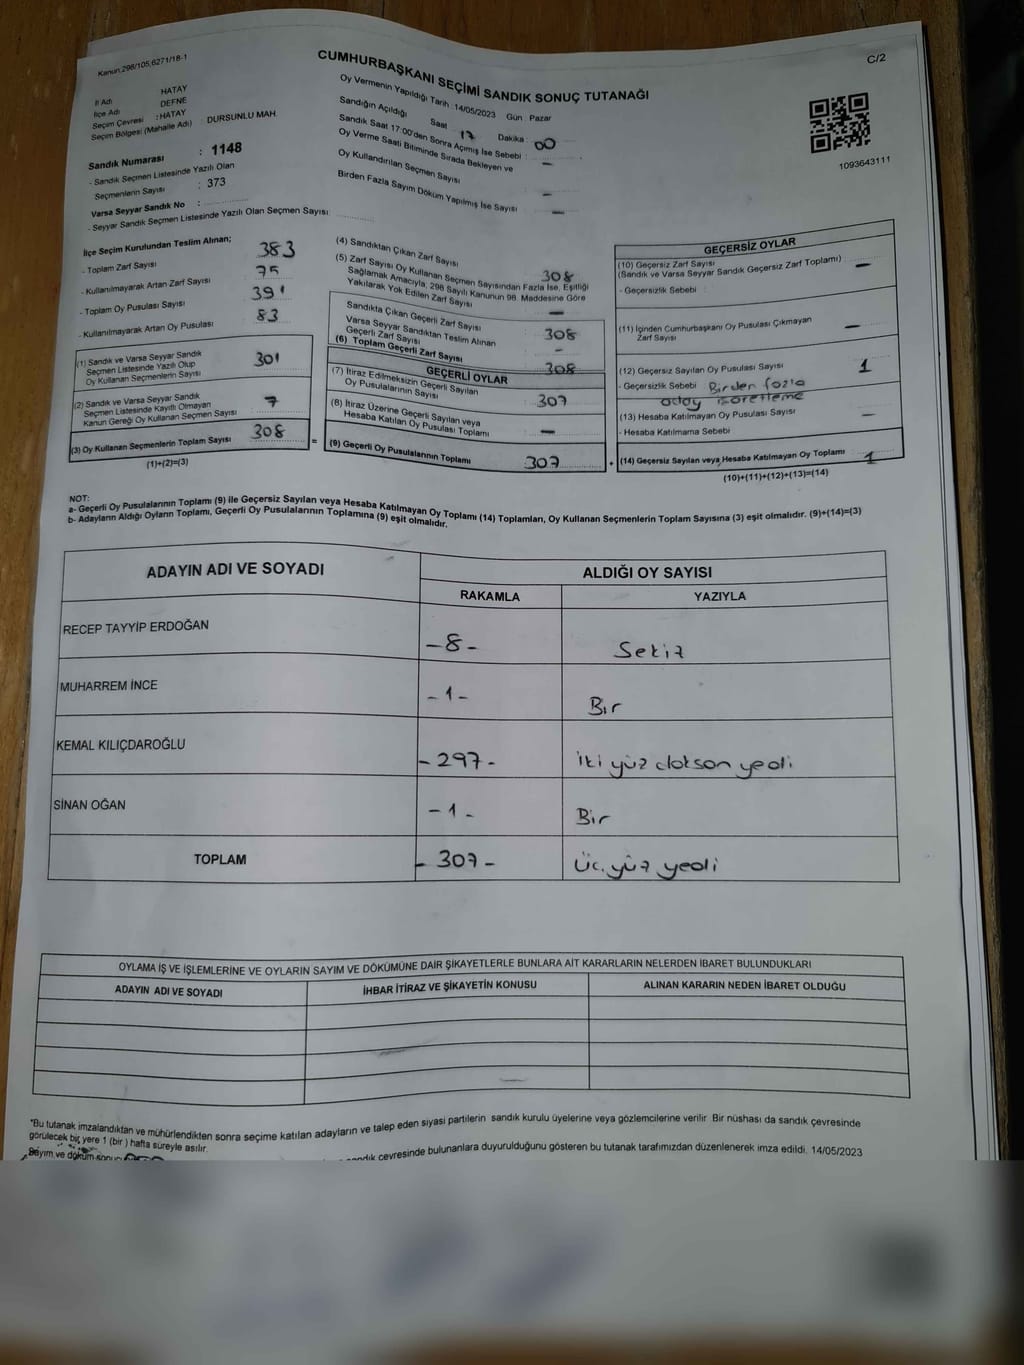 Kanun:298/105,6271/18-1
C/2
CUMHURBAŞKANI SEÇİMİ SANDIK SONUÇ TUTANAĞI
İl Adı HATAY
İlçe Adı DEFNE
Seçim Çevresi : HATAY
Seçim Bölgesi (Mahalle Adı) : DURSUNLU MAH.
Sandık Numarası : 1148
- Sandık Seçmen Listesinde Yazılı Olan
Seçmenlerin Sayısı : 373
Varsa Seyyar Sandık No :
- Seyyar Sandık Seçmen Listesinde Yazılı Olan Seçmen Sayısı
Oy Vermenin Yapıldığı Tarih :14/05/2023 Gün : Pazar
Sandığın Açıldığı Saat 17 Dakika : 00
Sandık Saat 17:00'den Sonra Açımış İse Sebebi : -
Oy Verme Saati Bitiminde Sırada Bekleyen ve
Oy Kullandırılan Seçmen Sayısı -
Birden Fazla Sayım Döküm Yapılmış İse Sayısı -
1093643111
İlçe Seçim Kurulundan Teslim Alınan;
- Toplam Zarf Sayısı 383
- Kullanılmayarak Artan Zarf Sayısı 75
- Toplam Oy Pusulası Sayısı 391
- Kullanılmayarak Artan Oy Pusulası 83
(1) Sandık ve Varsa Seyyar Sandık
Seçmen Listesinde Yazılı Olup
Oy Kullanan Seçmenlerin Sayısı 301
(2) Sandık ve Varsa Seyyar Sandık
Seçmen Listesinde Kayıtlı Olmayan
Kanun Gereği Oy Kullanan Seçmen Sayısı 7
(3) Oy Kullanan Seçmenlerin Toplam Sayısı 308
(1)+(2)=(3)
=
(4) Sandıktan Çıkan Zarf Sayısı 308
(5) Zarf Sayısı Oy Kullanan Seçmen Sayısından Fazla İse, Eşitliği
Sağlamak Amacıyla, 298 Sayılı Kanunun 98. Maddesine Göre
Yakılarak Yok Edilen Zarf Sayısı -
Sandıkta Çıkan Geçerli Zarf Sayısı 308
Varsa Seyyar Sandıktan Teslim Alınan
Geçerli Zarf Sayısı -
(6) Toplam Geçerli Zarf Sayısı 308
GEÇERLİ OYLAR
(7) İtiraz Edilmeksizin Geçerli Sayılan
Oy Pusulalarının Sayısı 307
(8) İtiraz Üzerine Geçerli Sayılan veya
Hesaba Katılan Oy Pusulası Toplamı -
(9) Geçerli Oy Pusulalarının Toplamı 307
+
GEÇERSİZ OYLAR
(10) Geçersiz Zarf Sayısı
(Sandık ve Varsa Seyyar Sandık Geçersiz Zarf Toplamı) -
- Geçersizlik Sebebi :
(11) İçinden Cumhurbaşkanı Oy Pusulası Çıkmayan
Zarf Sayısı -
(12) Geçersiz Sayılan Oy Pusulası Sayısı 1
- Geçersizlik Sebebi Birden fazla
aday işaretleme
(13) Hesaba Katılmayan Oy Pusulası Sayısı -
- Hesaba Katılmama Sebebi
(14) Geçersiz Sayılan veya Hesaba Katılmayan Oy Toplamı 1
(10)+(11)+(12)+(13)=(14)
NOT:
a- Geçerli Oy Pusulalarının Toplamı (9) ile Geçersiz Sayılan veya Hesaba Katılmayan Oy Toplamı (14) Toplamları, Oy Kullanan Seçmenlerin Toplam Sayısına (3) eşit olmalıdır. (9)+(14)=(3)
b- Adayların Aldığı Oyların Toplamı, Geçerli Oy Pusulalarının Toplamına (9) eşit olmalıdır.
ADAYIN ADI VE SOYADI
ALDIĞI OY SAYISI
RAKAMLA YAZIYLA
RECEP TAYYİP ERDOĞAN -8- Sekiz
MUHARREM İNCE -1- Bir
KEMAL KILIÇDAROĞLU -297- iki yüz doksan yedi
SİNAN OĞAN -1- Bir
TOPLAM -307- Üç yüz yedi
OYLAMA İŞ VE İŞLEMLERİNE VE OYLARIN SAYIM VE DÖKÜMÜNE DAİR ŞİKAYETLERLE BUNLARA AİT KARARLARIN NELERDEN İBARET BULUNDUKLARI
ADAYIN ADI VE SOYADI İHBAR İTİRAZ VE ŞİKAYETİN KONUSU ALINAN KARARIN NEDEN İBARET OLDUĞU
*Bu tutanak imzalandıktan ve mühürlendikten sonra seçime katılan adayların ve talep eden siyasi partilerin sandık kurulu üyelerine veya gözlemcilerine verilir. Bir nüshası da sandık çevresinde
görülecek bir yere 1 (bir ) hafta süreyle asılır.
Sayım ve döküm sandık çevresinde bulunanlara duyurulduğunu gösteren bu tutanak tarafımızdan düzenlenerek imza edildi. 14/05/2023